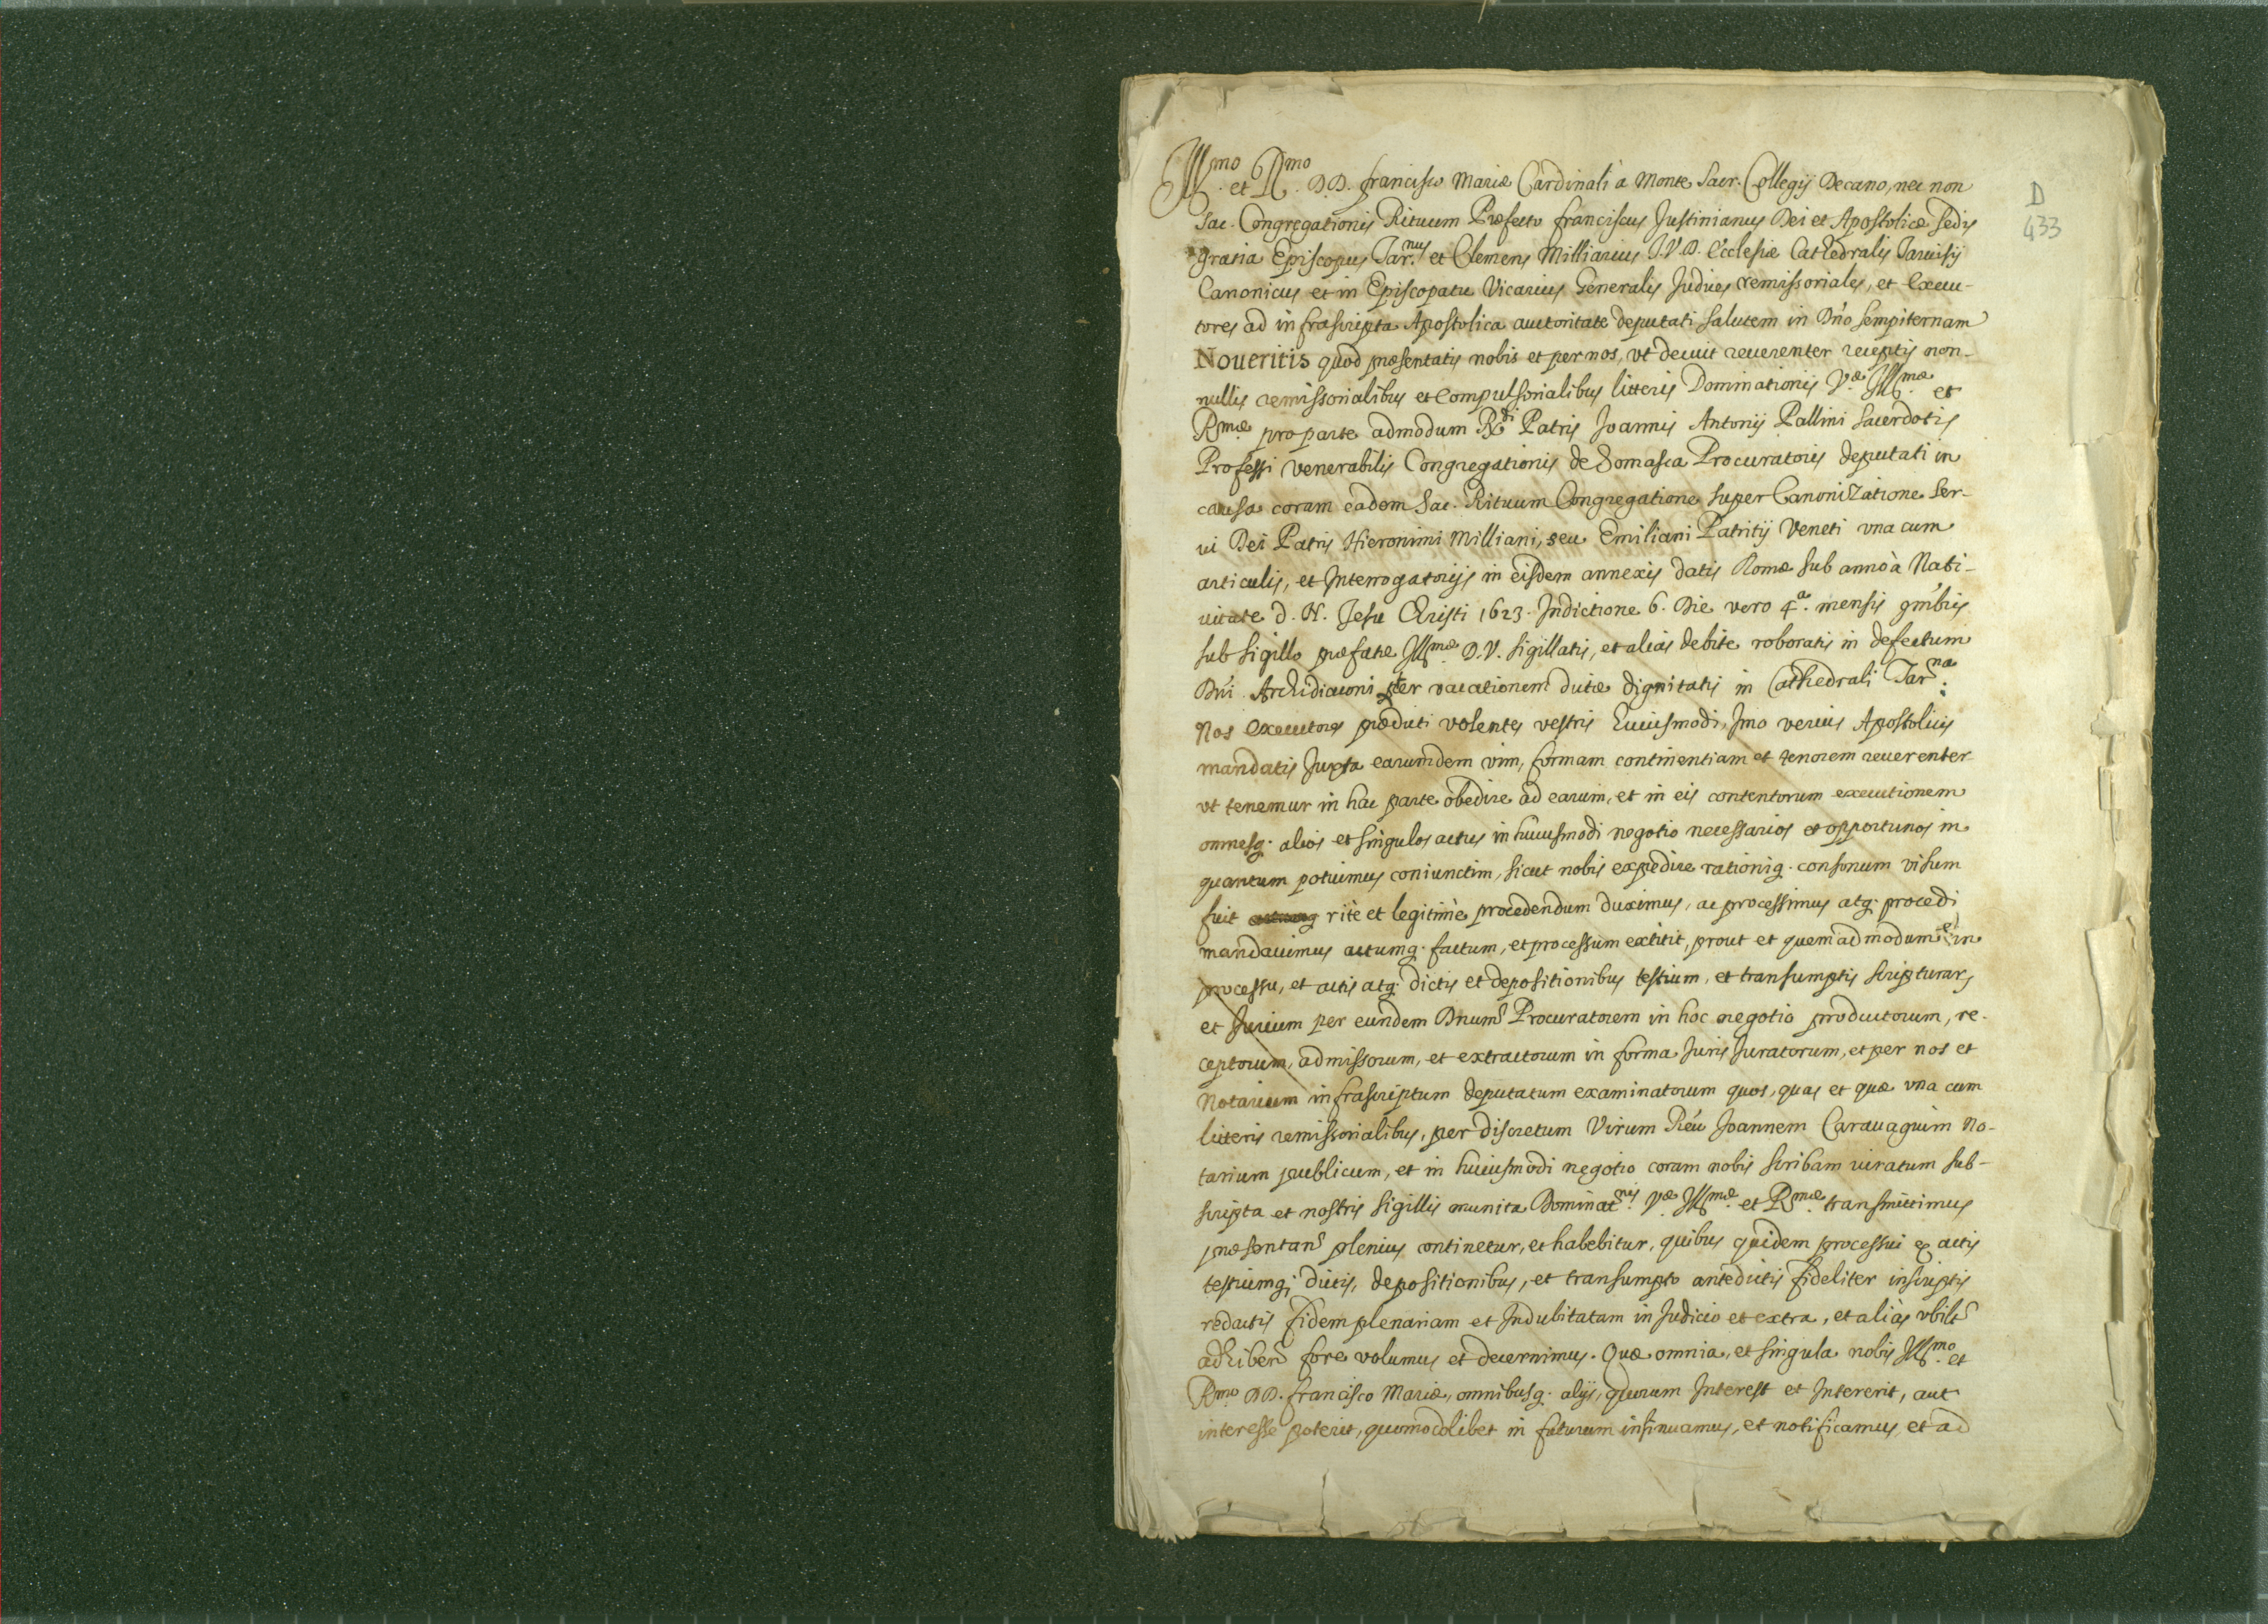 Illmo et Rmo DD. Francisco Mariæ Cardinali à Monte Sacr. Collegij Decano, nec non
D
433
Sac. Congregationis Rituum Præfecto Franciscus Justinianus Dei et Apostolicæ Sedis
gratia Episcopus Tar.nus et Clemens Milliarius J.V.D. Ecclesiæ Cathedralis Taruisij
Canonicus et in Episcopatu Vicarius Generalis Judices remissoriales, et Execu-
tores ad infrascripta Apostolica auctoritate deputati salutem in Dno sempiternam
Noueritis quod præsentatis nobis et per nos, vt decuit reuerenter receptis non-
nullis remissorialibus et compulsorialibus litteris Dominationis Væ Illmæ et
Rmæ pro parte admodum Rdi Patris Joannis Antonij Pallini Sacerdotis
Professi venerabilis Congregationis de Somasca Procuratoris deputati in
causa coram eadem Sac. Rituum Congregatione super Canonizatione Ser-
ui Dei Patris Hieronimi Milliani, seu Emiliani Patritij Veneti vna cum
articulis, et Interrogatorijs in eisdem annexis datis Romæ sub anno à Nati-
uitate D. N. Jesu Christi 1623. Indictione 6. Die vero 4a. mensis 9mbris
sub sigillo præfatæ Illmæ D.V. sigillatis, et aliàs debite roboratis in defectum
Dni Archidiaconi per vacationem dictæ dignitatis in Cathedrali Tarnæ:
Nos Executores prædicti volentes vestris huiusmodi, Imo verius Apostolicis
mandatis Juxta earumdem vim, formam continentiam et tenorem reuerenter
vt tenemur in hac parte obedire ad earum, et in eis contentorum executionem
omnesq. alios et singulos actus in huiusmodi negotio necessarios et opportunos in
quantum potuimus coniunctim, sicut nobis expedire rationiq. consonum visum
fuit rite et legitimè procedendum duximus, ac processimus atq. procedi
mandauimus actumq. factum, et processum extitit, prout et quemadmodum in
processu, et actis atq. dictis et depositionibus testium, et transumptis scripturar,
et Jurium per eundem Dnum Procuratorem in hoc negotio productorum, re-
ceptorum, admissorum, et extractorum in forma Juris Juratorum, et per nos et
Notarium infrascriptum deputatum examinatorum quos, quas et quæ vna cum
litteris remissorialibus, per discretum Virum Joannem Carauagium No-
tarium publicum, et in huiusmodi negotio coram nobis scribam iuratum sub-
scripta et nostris sigillis munita Dominatnis Væ Illmæ et Rmæ transmittimus
præsentan plenius continetur, et habebitur, quibus quidem processui & actis
testiumq; dictis, depositionibus, et transumpto antedictis fideliter inscriptis
redactis fidem plenariam et Indubitatam in Judicio et extra, et aliàs vbilt
adhiben fore volumus et decernimus. Quæ omnia, et singula nobis Illmo et
Rmo DD. Francisco Mariæ, omnibusq. alijs, quorum Interest et Intererit, aut
interesse poterit, quomodolibet in futurum insinuamus, et notificamus, et ad